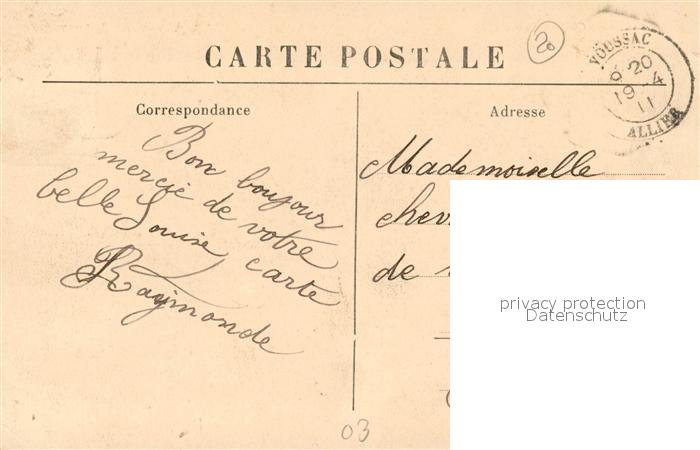 CARTE POSTALE
20
VOUSSAC
20
19 4
11
ALLIER
Correspondance
Bon boujour
mercie de votre
belle Louise carte
Raymonde
Adresse
Mademoiselle
de
privacy protection
Datenschutz
03